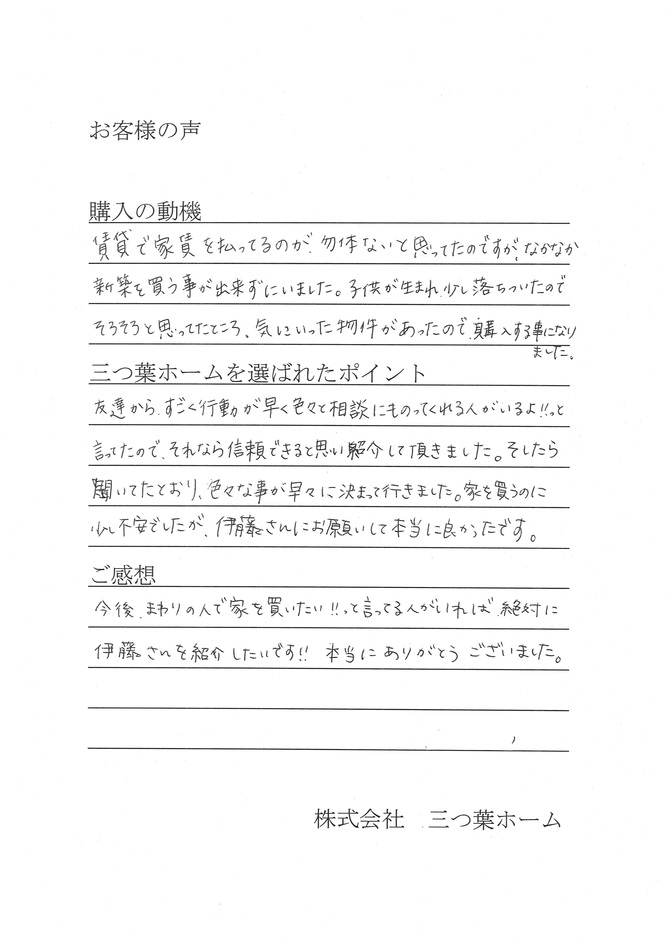 お客様の声
購入の動機
賃貸で家賃を払ってるのが、勿体ないと思ってたのですが、なかなか
新築を買う事が出来ずにいました。子供が生まれ、少し落ちついたので
そろそろと思ってたところ、気にいった物件があったので、購入する事になり
ました。
三つ葉ホームを選ばれたポイント
友達から、すごく行動が早く色々と相談にものってくれる人がいるよ!!っと
言ってたので、それなら信頼できると思い紹介して頂きました。そしたら
聞いてたとおり、色々な事が早々に決まって行きました。家を買うのに
少し不安でしたが、伊藤さんにお願いして本当に良かったです。
ご感想
今後、まわりの人で家を買いたい!!って言ってる人がいれば、絶対に
伊藤さんを紹介したいです!! 本当にありがとうございました。
株式会社 三つ葉ホーム